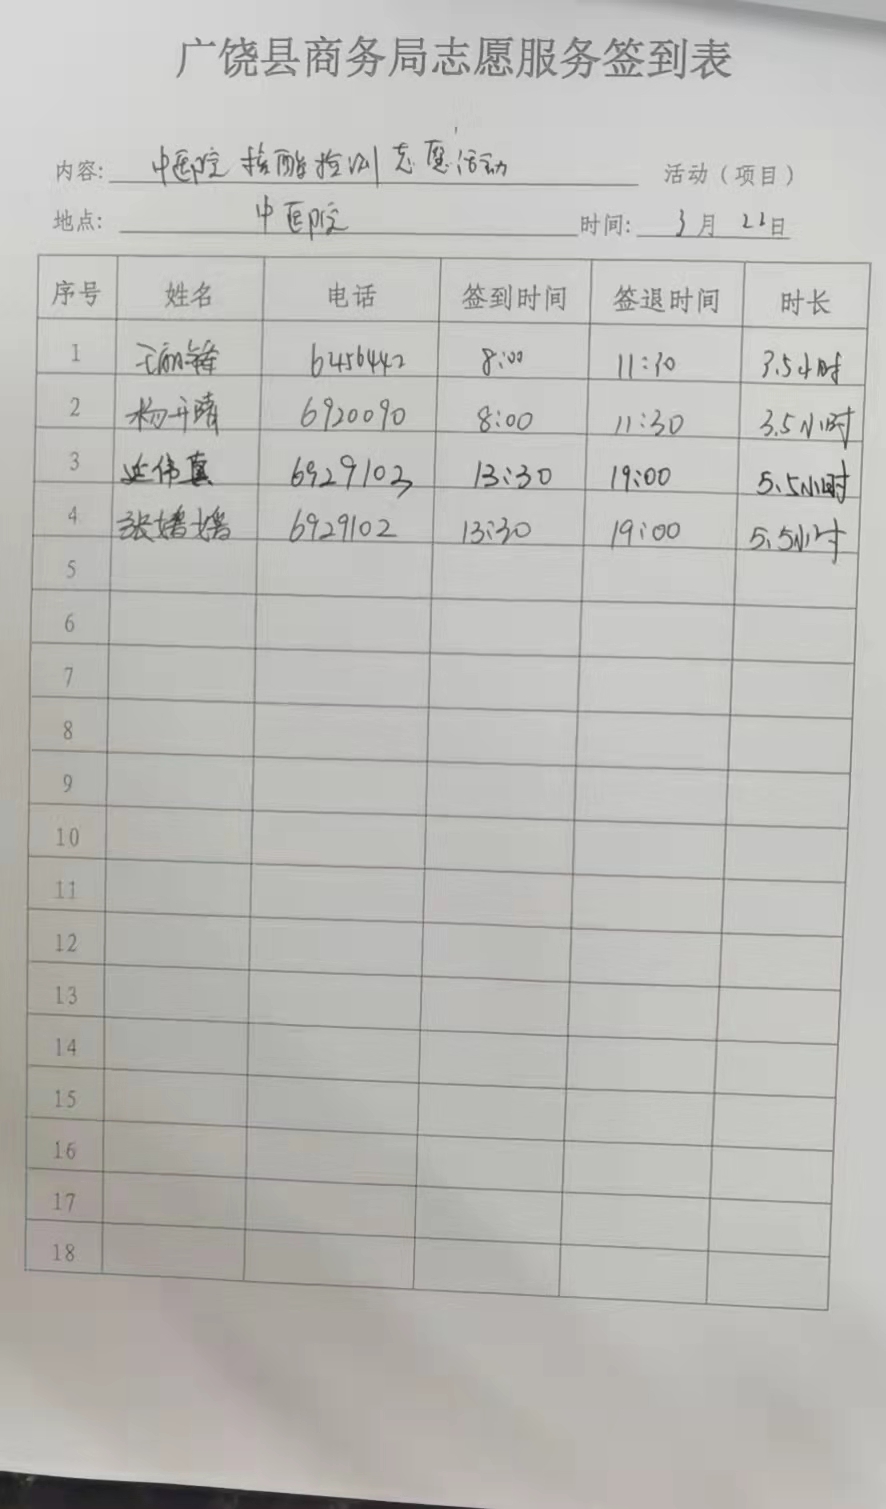 广饶县商务局志愿服务签到表
内容: 中医院核酸检测志愿活动 活动（项目）
地点: 中医院 时间: 3月22日
序号 姓名 电话 签到时间 签退时间 时长
1 6456442 8:00 11:30 3.5小时
2 杨开晴 6920090 8:00 11:30 3.5小时
3 延伟真 6929102 13:30 19:00 5.5小时
4 张嬉嬉 6929102 13:30 19:00 5.5小时
5
6
7
8
9
10
11
12
13
14
15
16
17
18